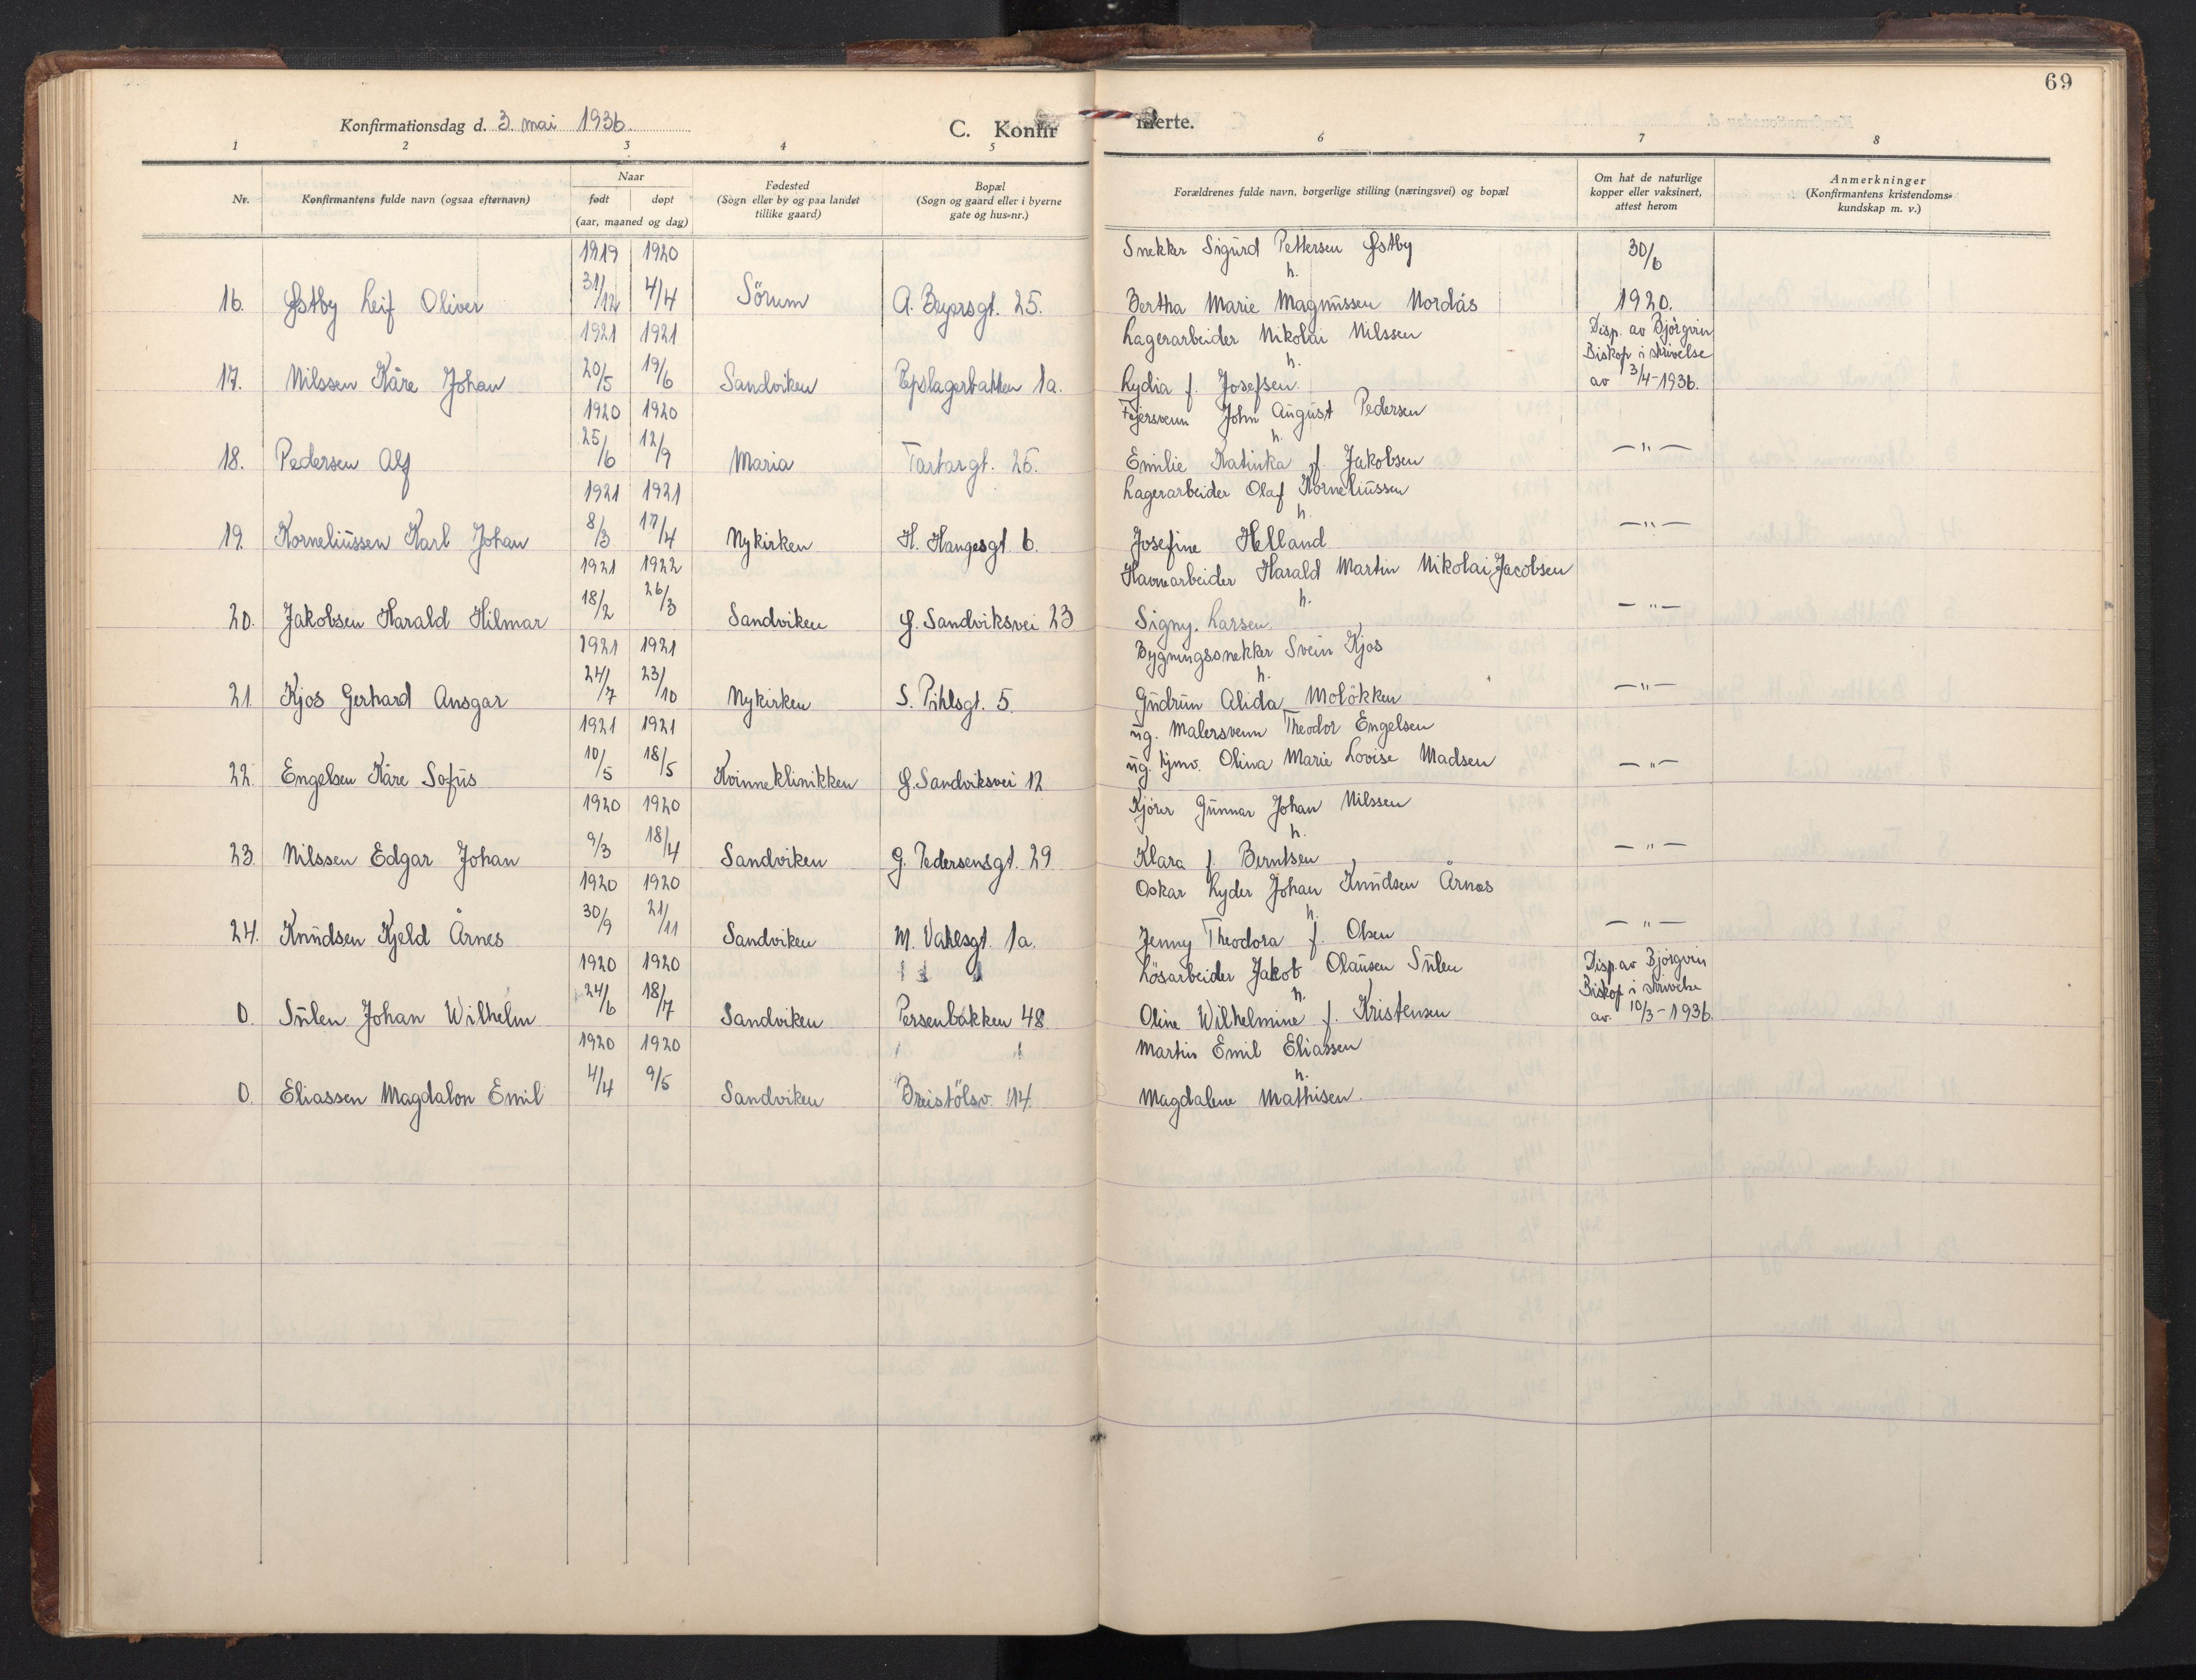 69
Konfirmationsdag d. 3. mai 1936.
C. Konfirmerte.
1 2 3 4 5 6 7 8
Nr. Konfirmantens fulde navn (ogsaa efternavn) Naar født døpt (aar, maaned og dag) Fødested (Sogn eller by og paa landet tillike gaard) Bopæl (Sogn og gaard eller i byerne gate og hus-nr.) Forældrenes fulde navn, borgerlige stilling (næringsvei) og bopæl Om hat de naturlige kopper eller vaksinert, attest herom Anmerkninger (Konfirmantens kristendoms-kundskap m. v.)
1919 1920 Snekker Sigurd Pettersen Østby 30/6
h.
16. Østby Leif Oliver 31/12 4/4 Sörum A. Beyersgt. 25. Bertha Marie Magnussen Nordås 1920.
1921 1921 Lagerarbeider Nikolai Nilssen Disp. av Björgvin
h. Biskop i skrivelse
17. Nilssen Kåre Johan 20/5 19/6 Sandviken Repslagerbakken 1a. Lydia f. Josefsen. av 3/4-1936.
1920 1920 Fejersvenn John August Pedersen
h.
18. Pedersen Alf 25/6 12/9 Maria Tartargt. 26. Emilie Katinka f. Jakobsen — " —
1921 1921 Lagerarbeider Olaf Korneliussen
h.
19. Korneliussen Karl Johan 8/3 17/4 Nykirken H. Haugesgt. 6. Josefine Helland — " —
1921 1922 Havnearbeider Harald Martin Nikolai Jacobsen
h.
20. Jakobsen Harald Hilmar 18/2 26/3 Sandviken G. Sandviksvei 23 Signy Larsen. — " —
1921 1921 Bygningssnekker Svein Kjos
h.
21. Kjos Gerhard Ansgar 24/7 23/10 Nykirken S. Pihlsgt. 5. Gudrun Alida Molökken — " —
1921 1921 ug. Malersvenn Theodor Engelsen
22. Engelsen Kåre Sofus 10/5 18/5 Kvinneklinikken G. Sandviksvei 12 ug. tjmv. Olina Marie Lovise Madsen — " —
1920 1920 Kjörer Gunnar Johan Nilssen
h.
23. Nilssen Edgar Johan 9/3 18/4 Sandviken G. Pedersensgt. 29 Klara f. Berntsen — " —
1920 1920 Oskar Lyder Johan Knudsen Årnes
h.
24. Knudsen Kjeld Årnes 30/9 21/11 Sandviken M. Vahlsgt. 1a. Jenny Theodora f. Olsen — " —
1920 1920 Lösarbeider Jakob Olausen Sulen Disp. av Björgvin
h. Biskop i skrivelse
0. Sulen Johan Wilhelm 24/6 18/7 Sandviken Persenbakken 48 Oline Wilhelmine f. Kristensen av. 10/3-1936.
1920 1920 Martin Emil Eliassen
h.
0. Eliassen Magdalon Emil 4/4 9/5 Sandviken Breistölsv. 14. Magdalene Mathisen.